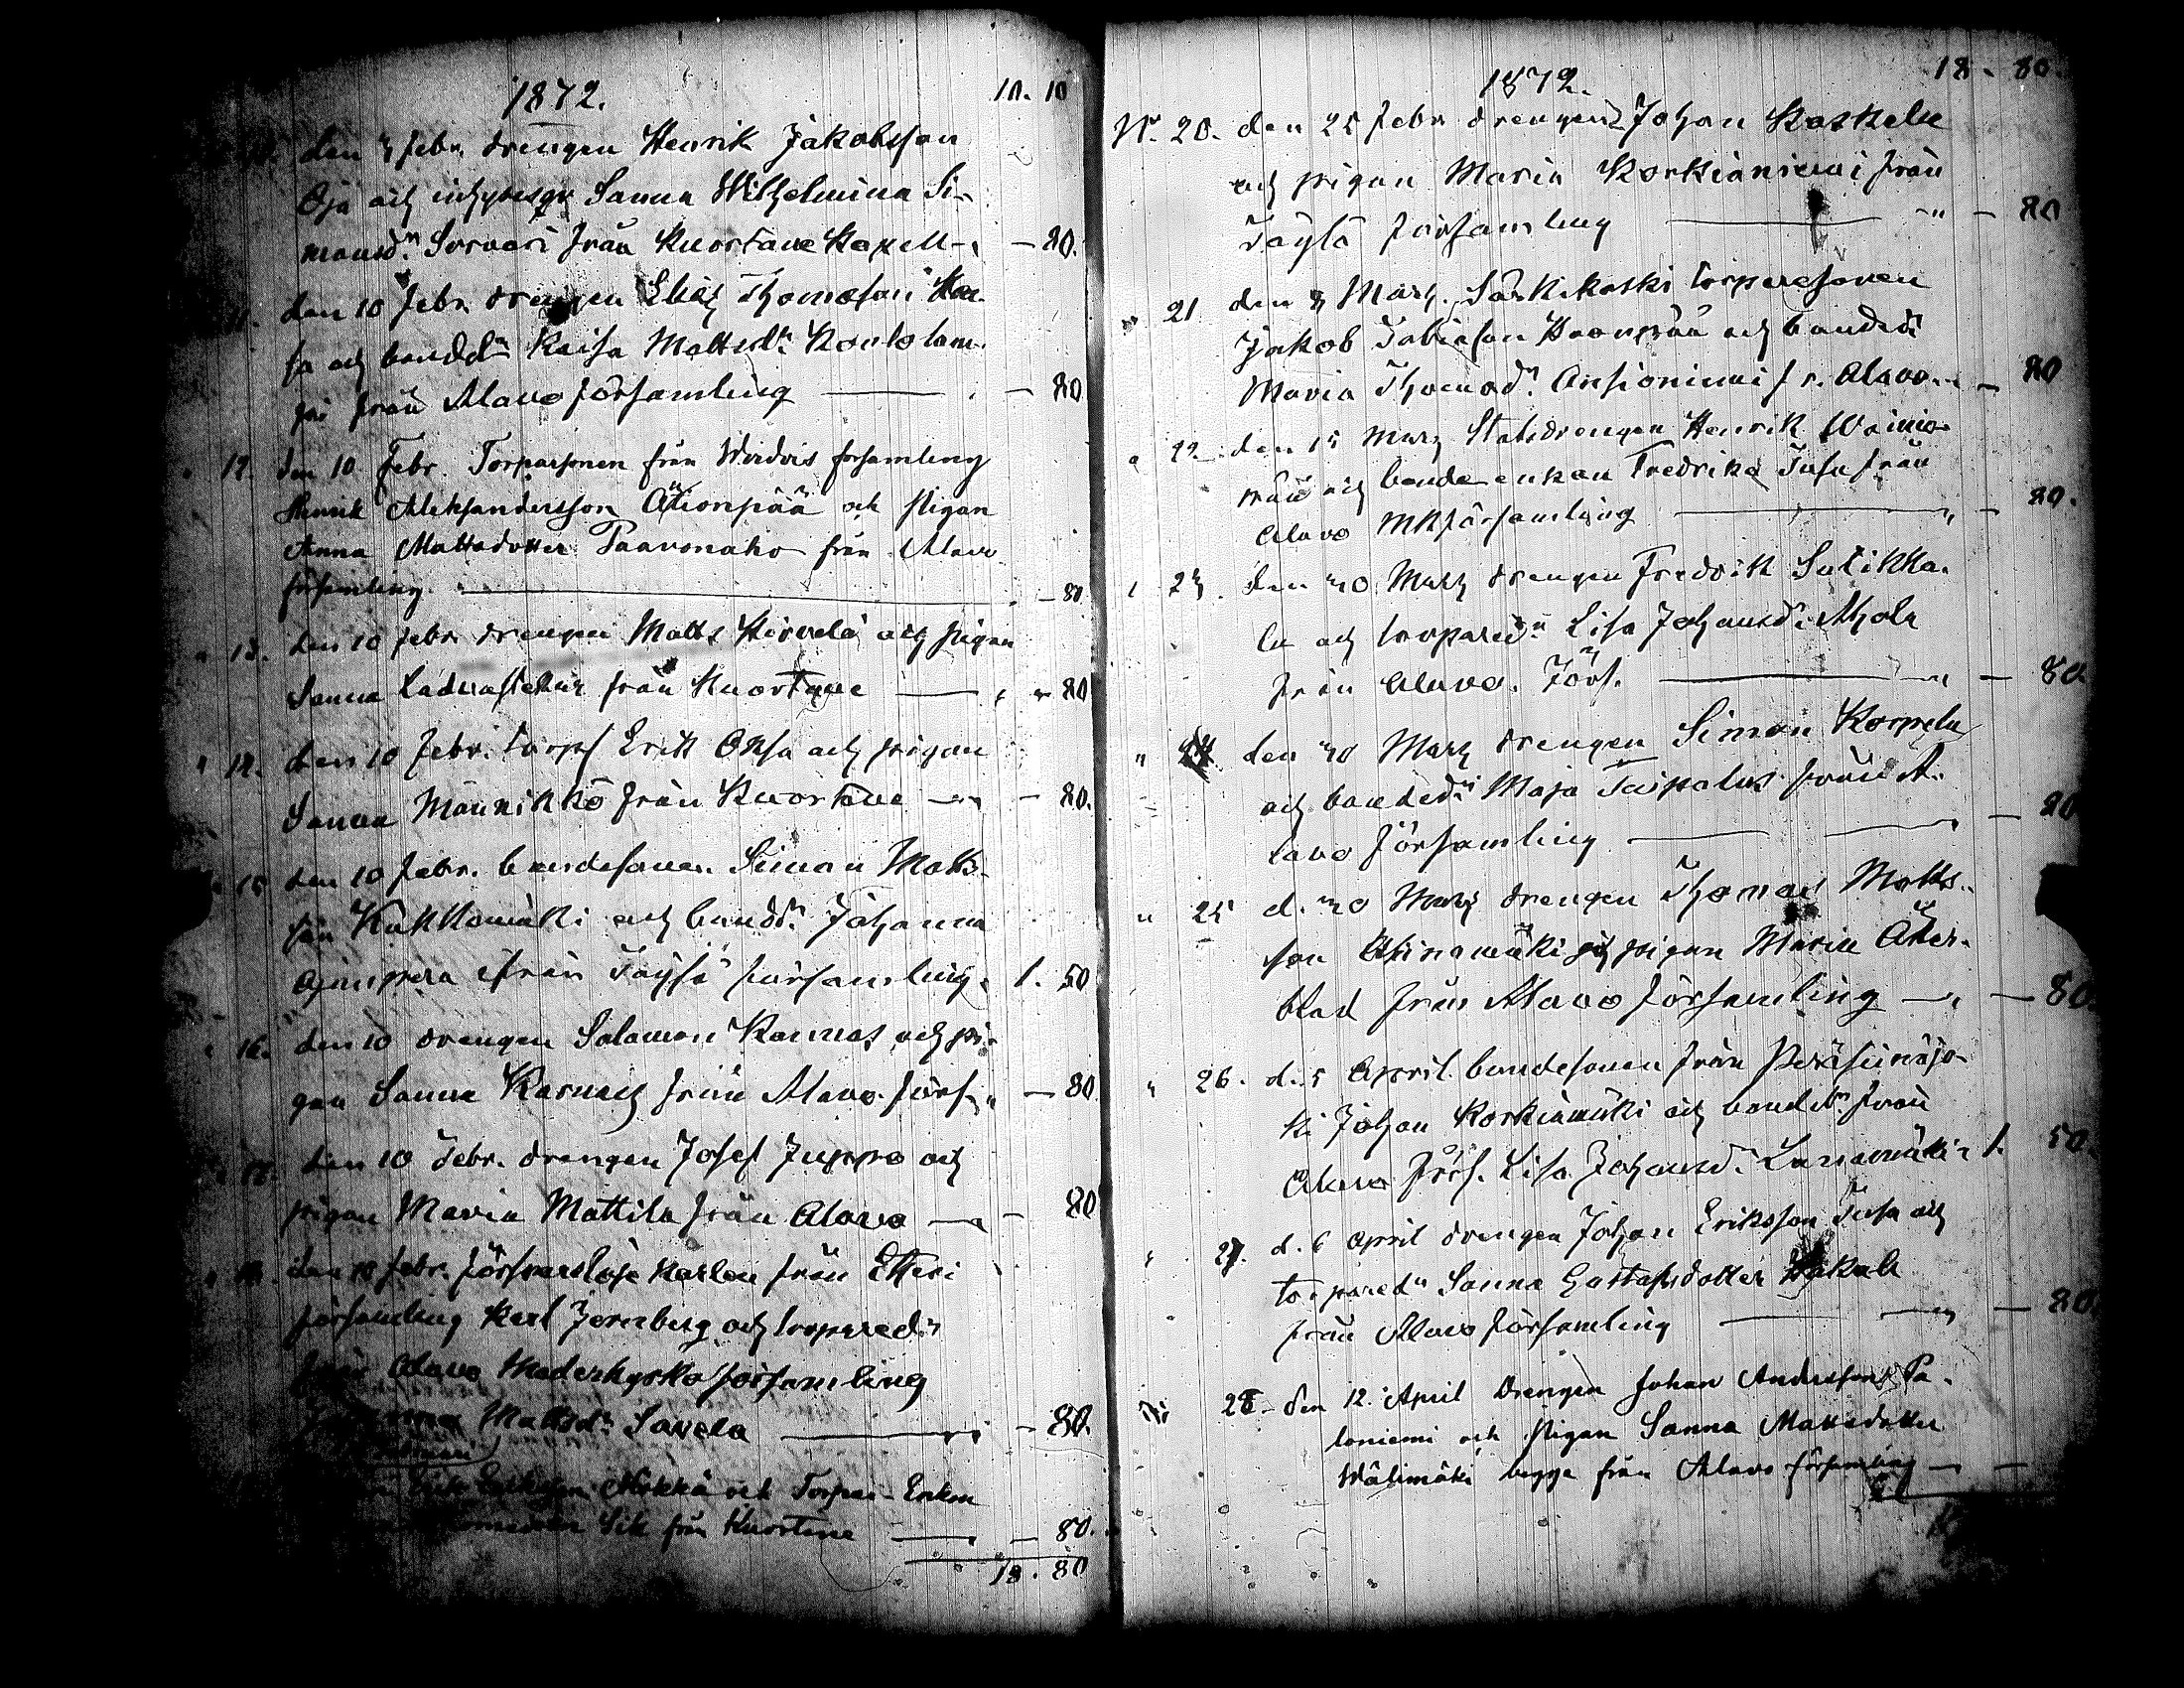 1872.
10. 10
10. den 4 febr. drengen Henrik Jakobsson
Oja och inhysesgr Sanna Wilhelmina Si-
monsdr. Sorvari från Kuortane Kapell - 80.
11. den 10 febr. drengen Elias Thomasson
sa och bondedr Kaisa Mattsdr.
från Alavo församling - 80
12. den 10 Febr. Torparsonen från Wirdois forsamling
Henrik Aleksandersson och Pigan
Anna Mattsdotter Paavonaho från Alavo
församling - 80
" 13. den 10 febr. drengen Matts Hirvelä och pigan
Sanna från Kuortane " - 80
" 14. den 10 febr. torps Erik Oksa och pigan
Sanna Männikkö från Kuortane - 80.
" 15 den 10 febr. bondesonen Simon Matts-
son Kukkomäki och bondedr. Johanna
från Töysä församling. 1. 50
" 16. den 10 drengen Salomon Karnas och pi-
gan Sanna från Alavo förs. " - 80
" 17. den 10 Febr. drengen Josef Juppo och
pigan Maria Mattila från Alavo - 80
" 18. den 10 febr. försvarslöse karlen från Etseri
församling Karl Jernberg och torparedr
från Alavo Moderkyrko församling
Mattsdr. Savela - 80.
Erik Eriksson och Torpar-Enkan
från Kuortane - 80.
18. 80
1872.
18. 80.
No. 20. den 25 febr. drengen Johan Koskela
och pigan Maria Korkianiemi från
Töysä församling " - 80
" 21 den 3 Mars. Särkikoski torparesonen
Jakob Tobiasson och bondedr
Maria Thomasdr. Ansioniemi f r. Alavo. - 80
" 22. den 15 Mars Statsdrengen Henrik Wainio-
och bonde enkan Fredrika Tusa från
Alavo MKförsamling " - 80.
" 23. den 20 Mars drengen Fredrik Sulikka-
la och torparedr Lisa Johansdr. Ahola
från Alavo. Förs. " - 80.
" 24 den 30 Mars drengen Simon Korpela
och bondedr Maja Taipalus från A-
lavo församling - 80
" 25 d. 30 Mars drengen Thomas Matts-
son och pigan Maria Åker-
blad från Alavo församling - 80.
" 26. d. 5 April. bondesonen från Peräseinäjo-
ki Johan Korkiamäki och bondedr. från
Alavo Förs. Lisa Johansdr. 1. 50.
" 27. d. 6 April drengen Johan Eriksson Tusa och
torparedr Sanna Gustafsdotter
från Alavo församling - 80.
28. den 12. April Drengen Johan Andersson Pa-
loniemi och Pigan Sanna Mattsdotter
Wälimäki begge från Alavo församling -